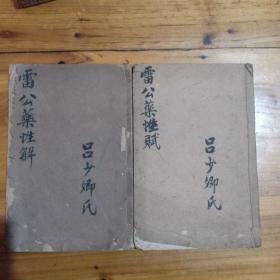 雷公藥性解
呂少卿氏
雷公藥性賦
呂少卿氏